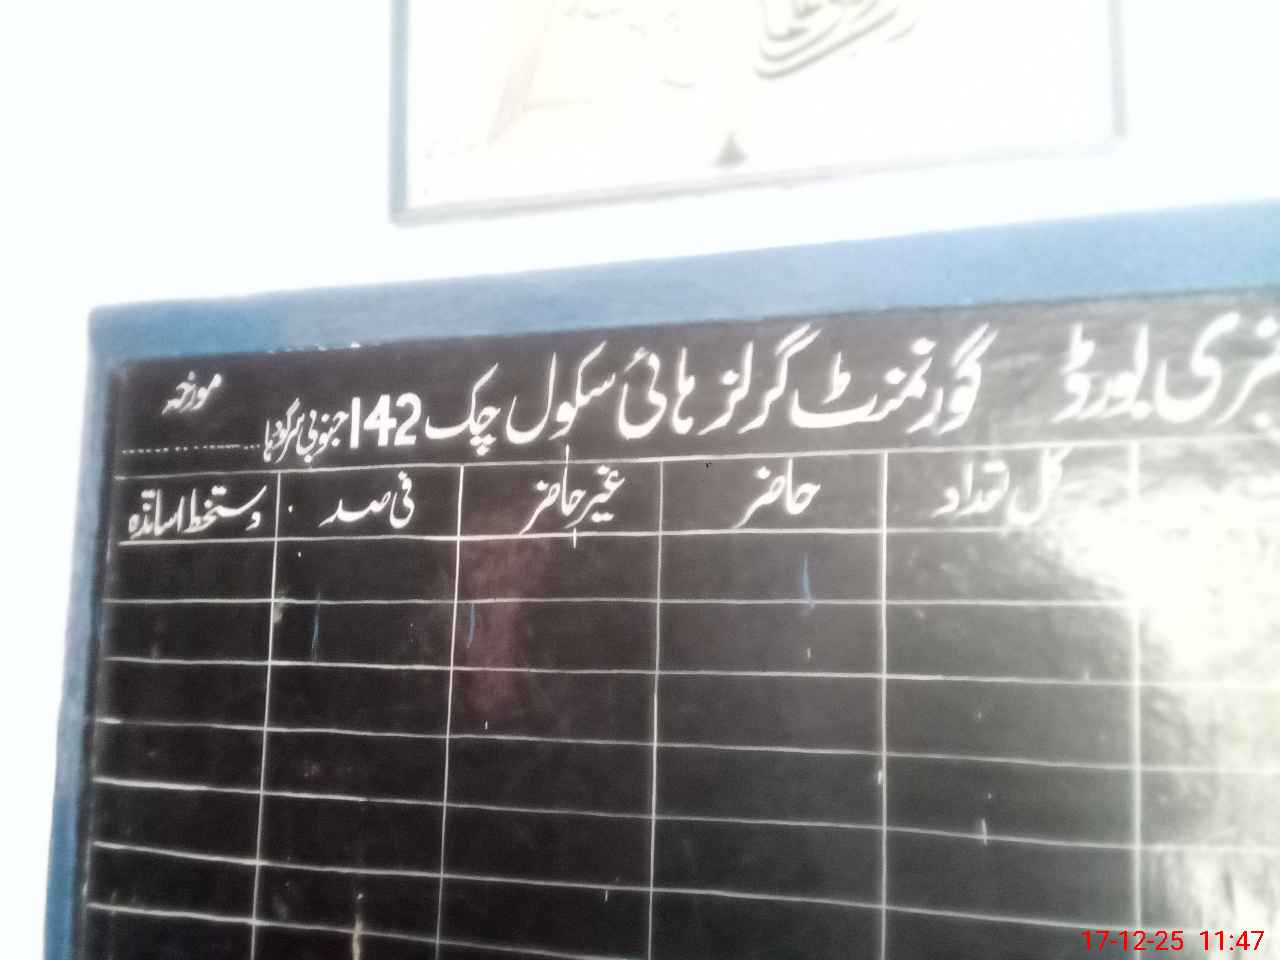 بورڈ گورنمنٹ گرلز ہائی سکول چک 142 جنوبی سرگودہا
مورخہ
کل تعداد حاضر غیر حاضر فی صد دستخط اساتذہ
17-12-25 11:47